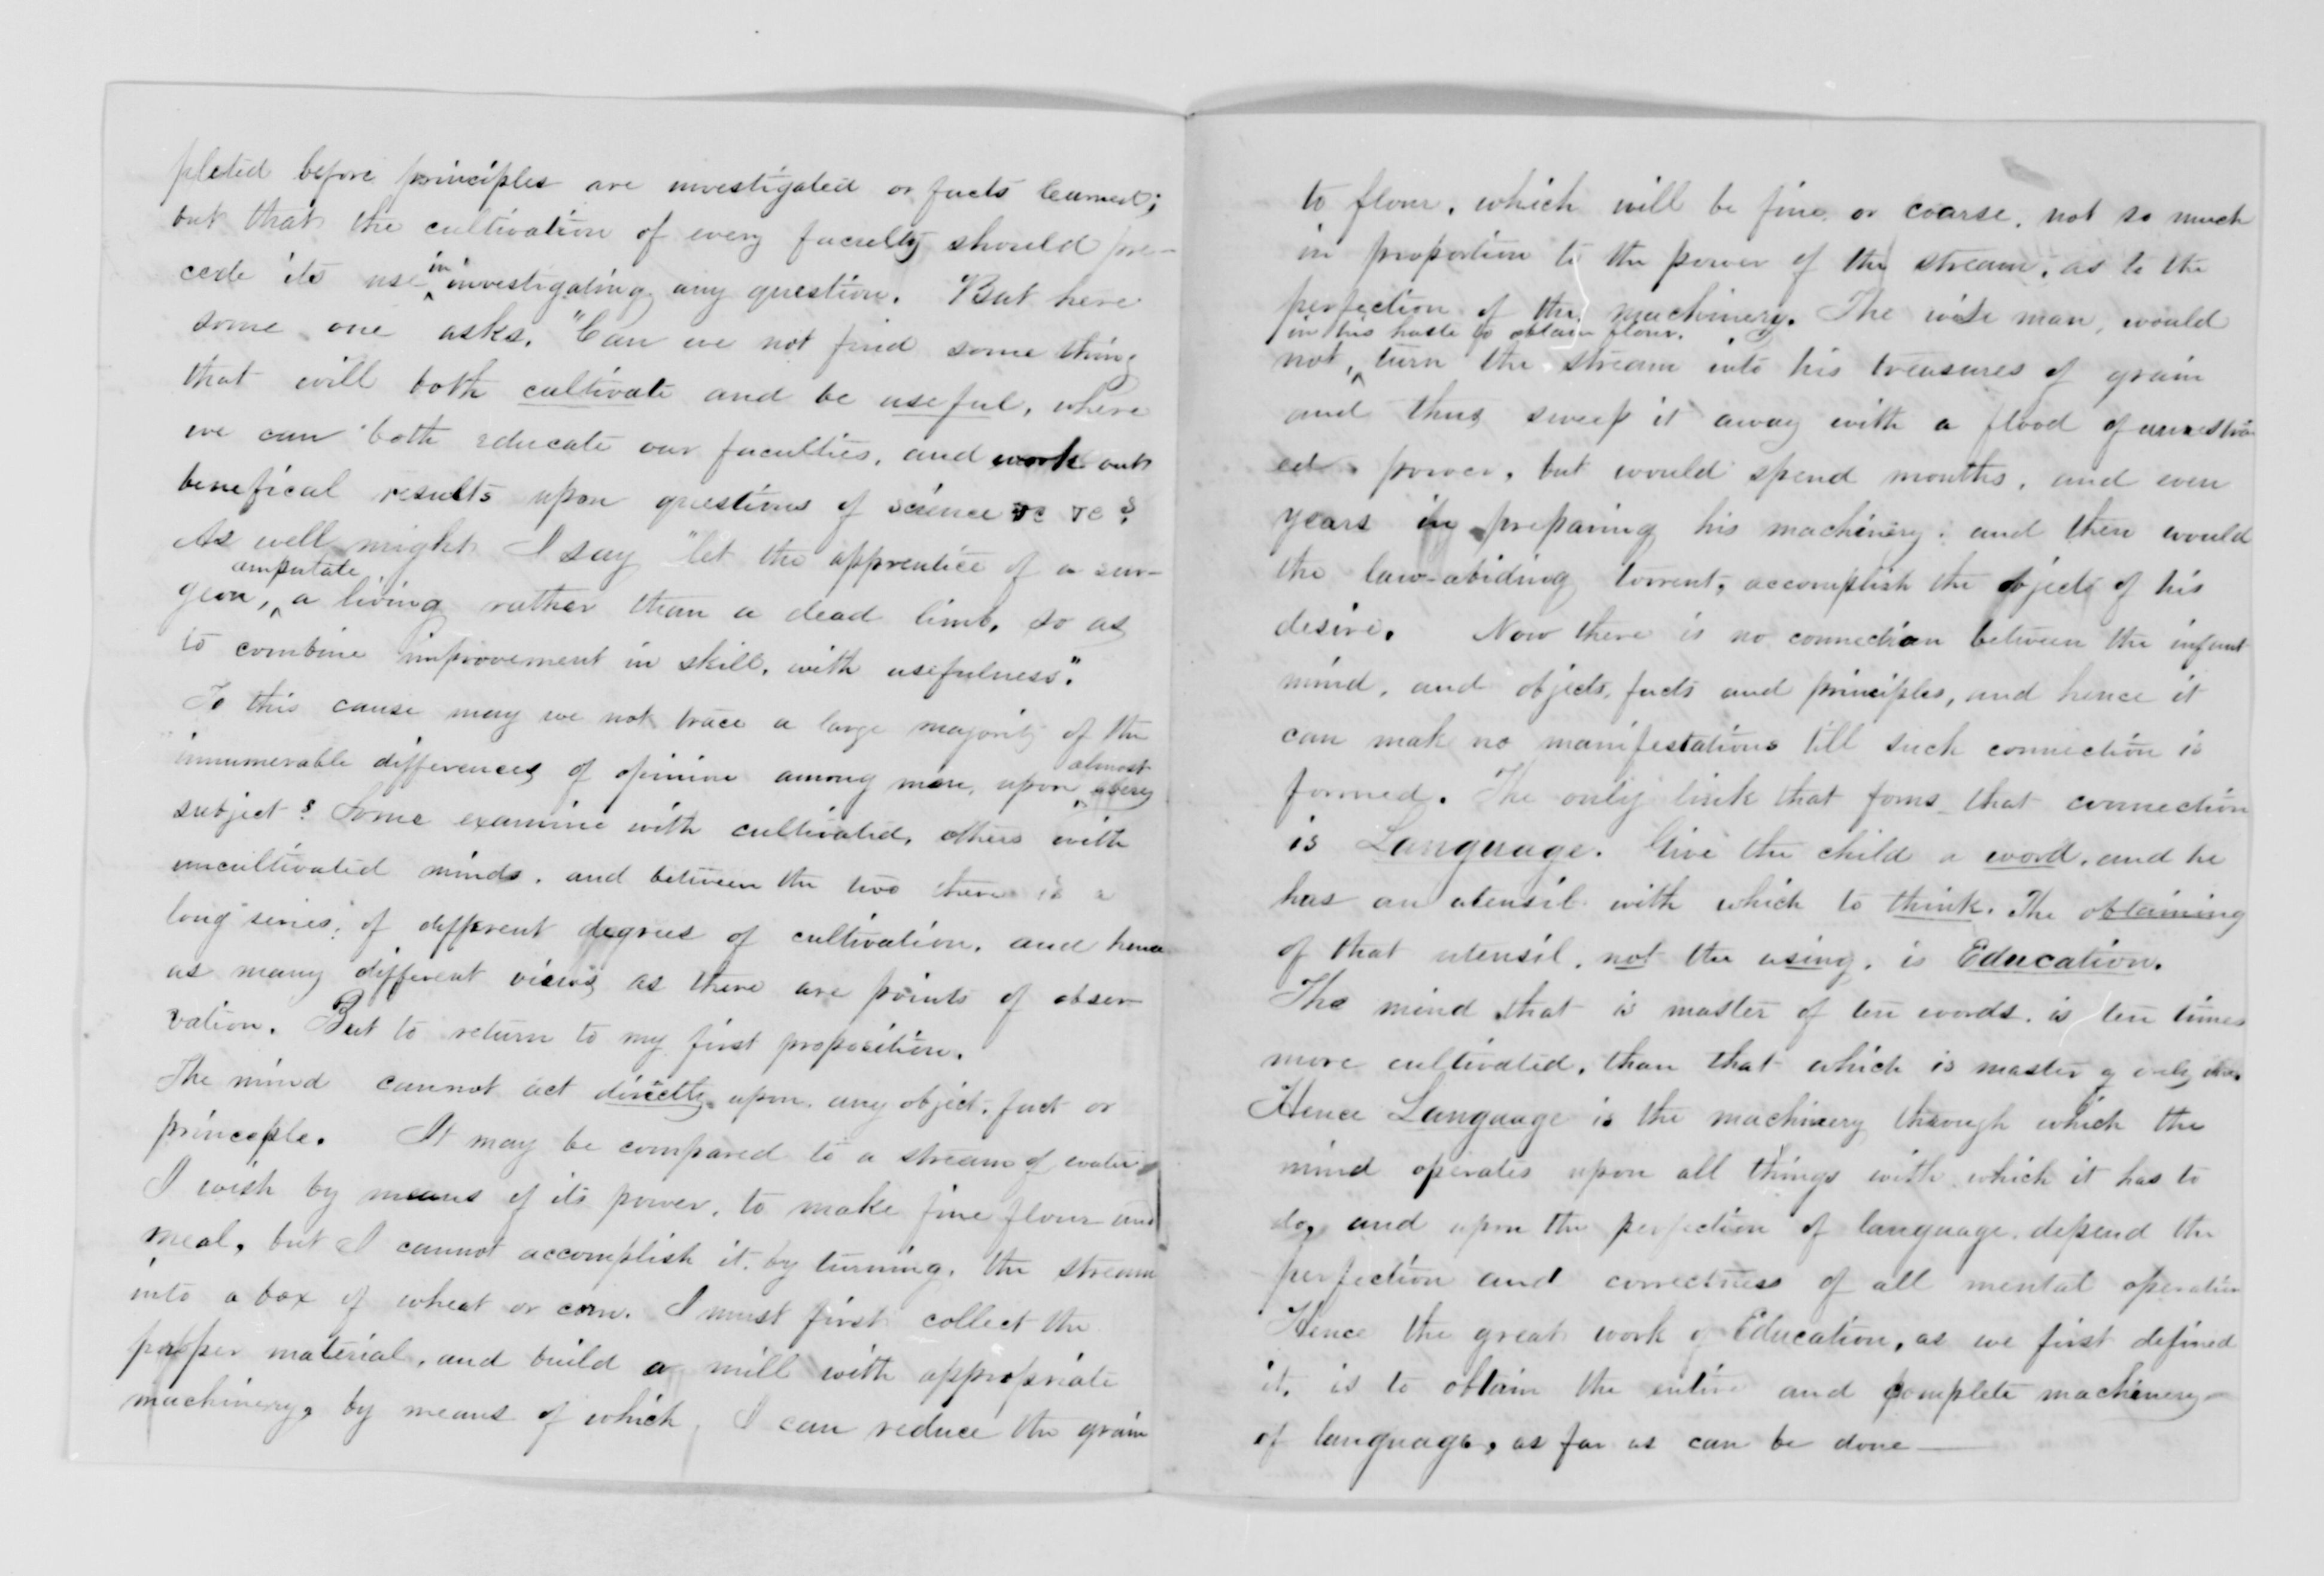 pleted before principles are investigated or facts learned;
but that the cultivation of every faculty should pre-
cede its use in investigating any question. But here
some one asks. "Can we not find some thing
that will both cultivate and be useful, where
we can both educate our faculties, and work out
benefical results upon questions of science &c &c?
As well might I say "let the apprentice of a sur-
amputate
geon, ^ a living rather than a dead limb, so as
to combine improvement in skill, with usefulness".
To this cause may we not trace a large majority of the
innumerable differences of opinion among men, upon almost every
subject? Some examine with cultivated, others with
uncultivated minds, and between the two there is a
long "series" of different degrees of cultivation, and hence
as many different views as there are points of obser-
vation. But to return to my first proposition.
The mind cannot act directly upon any object, fact or
princeple. It may be compared to a stream of water.
I wish by means of its power, to make fine flour and
meal, but I cannot accomplish it by turning, the stream
into a box of wheat or corn. I must first collect the
proper material, and build a mill with appropriate
machinery, by means of which, I can reduce the grain
to flour, which will be fine or coarse, not so much
in proportion to the power of the stream, as to the
perfection of the machinery. The wise man, would
in his haste to obtain flour.
not, ^ turn the stream into his treasures of grain
and thus sweep it away with a flood of unrestrain
ed power, but would spend months, and even
years in preparing his machinery; and then would
the law-abiding torrent, accomplish the objects of his
desire. Now there is no connection between the infant
mind, and objects, facts and principles, and hence it
can mak no manifestations till such connection is
formed. The only link that foms that connection
is Language. Give the child a word, and he
has an utensil with which to think. The obtaining
of that utensil, not the using, is Education.
The mind that is master of ten words, is ten times
more cultivated, than that which is master of only one.
Hence Language is the machinery through which the
mind operates upon all things with which it has to
do, and upon the perfection of language depend the
perfection and correctness of all mental operation
Hence the great work of Education, as we first defined
it, is to obtain the entire and complete machinery
of language, as far as can be done—